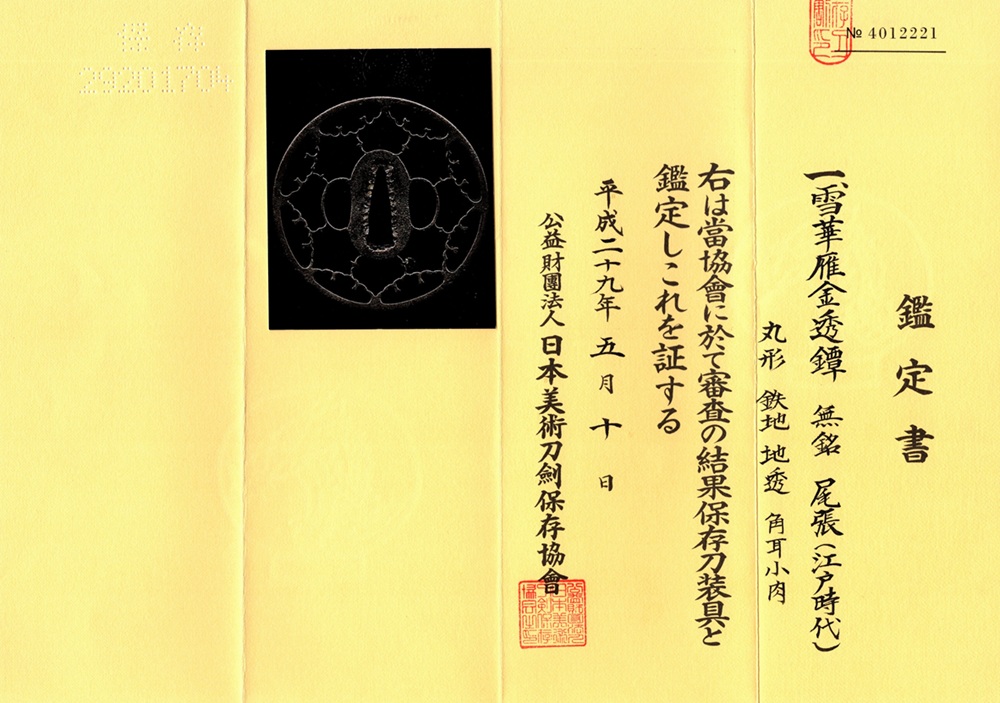 № 4012221
鑑定書
一、雪華雁金透鐔　無銘　尾張(江戸時代)
丸形　鉄地　地透　角耳小肉
右は當協會に於て審査の結果保存刀装具と
鑑定しこれを証する
平成二十九年五月十日
公益財團法人日本美術刀劍保存協會
保存
29201704